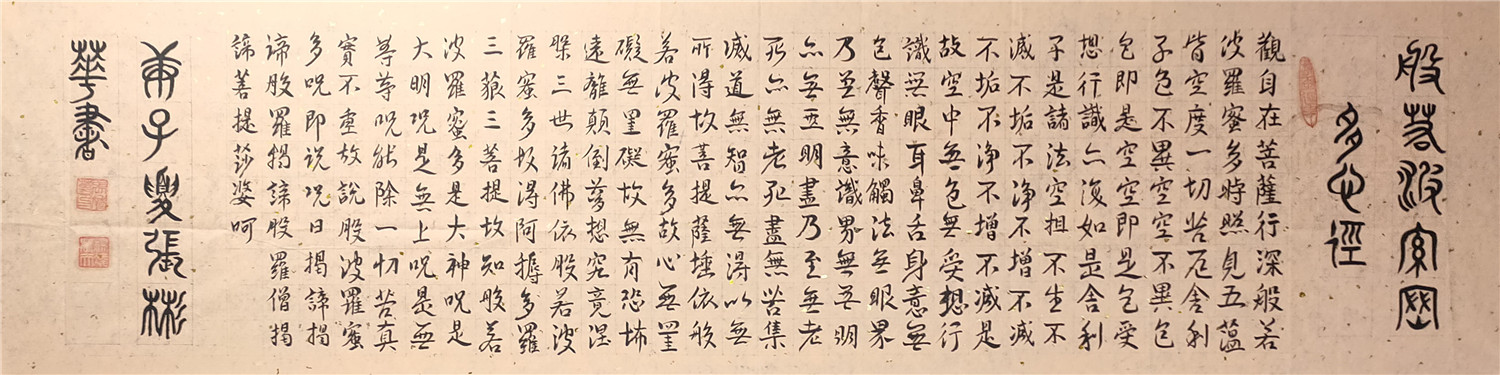 般若波羅密
多心經
觀自在菩薩行深般若
波羅蜜多時照見五蘊
皆空度一切苦厄舍利
子色不異空空不異色
色即是空空即是色受
想行識亦復如是舍利
子是諸法空相不生不
滅不垢不淨不增不減
不垢不淨不增不減是
故空中無色無受想行
識無眼耳鼻舌身意無
色聲香味觸法無眼界
乃至無意識界無無明
亦無無明盡乃至無老
死亦無老死盡無苦集
滅道無智亦無得以無
所得故菩提薩埵依般
若波羅蜜多故心無罣
礙無罣礙故無有恐怖
遠離顛倒夢想究竟涅
槃三世諸佛依般若波
羅蜜多故得阿耨多羅
三藐三菩提故知般若
波羅蜜多是大神咒是
大明咒是無上咒是無
等等咒能除一切苦真
實不虛故說般波羅蜜
多咒即說咒曰揭諦揭
諦般羅揭諦般羅僧揭
諦菩提莎婆呵
庚子夏張彬
華書